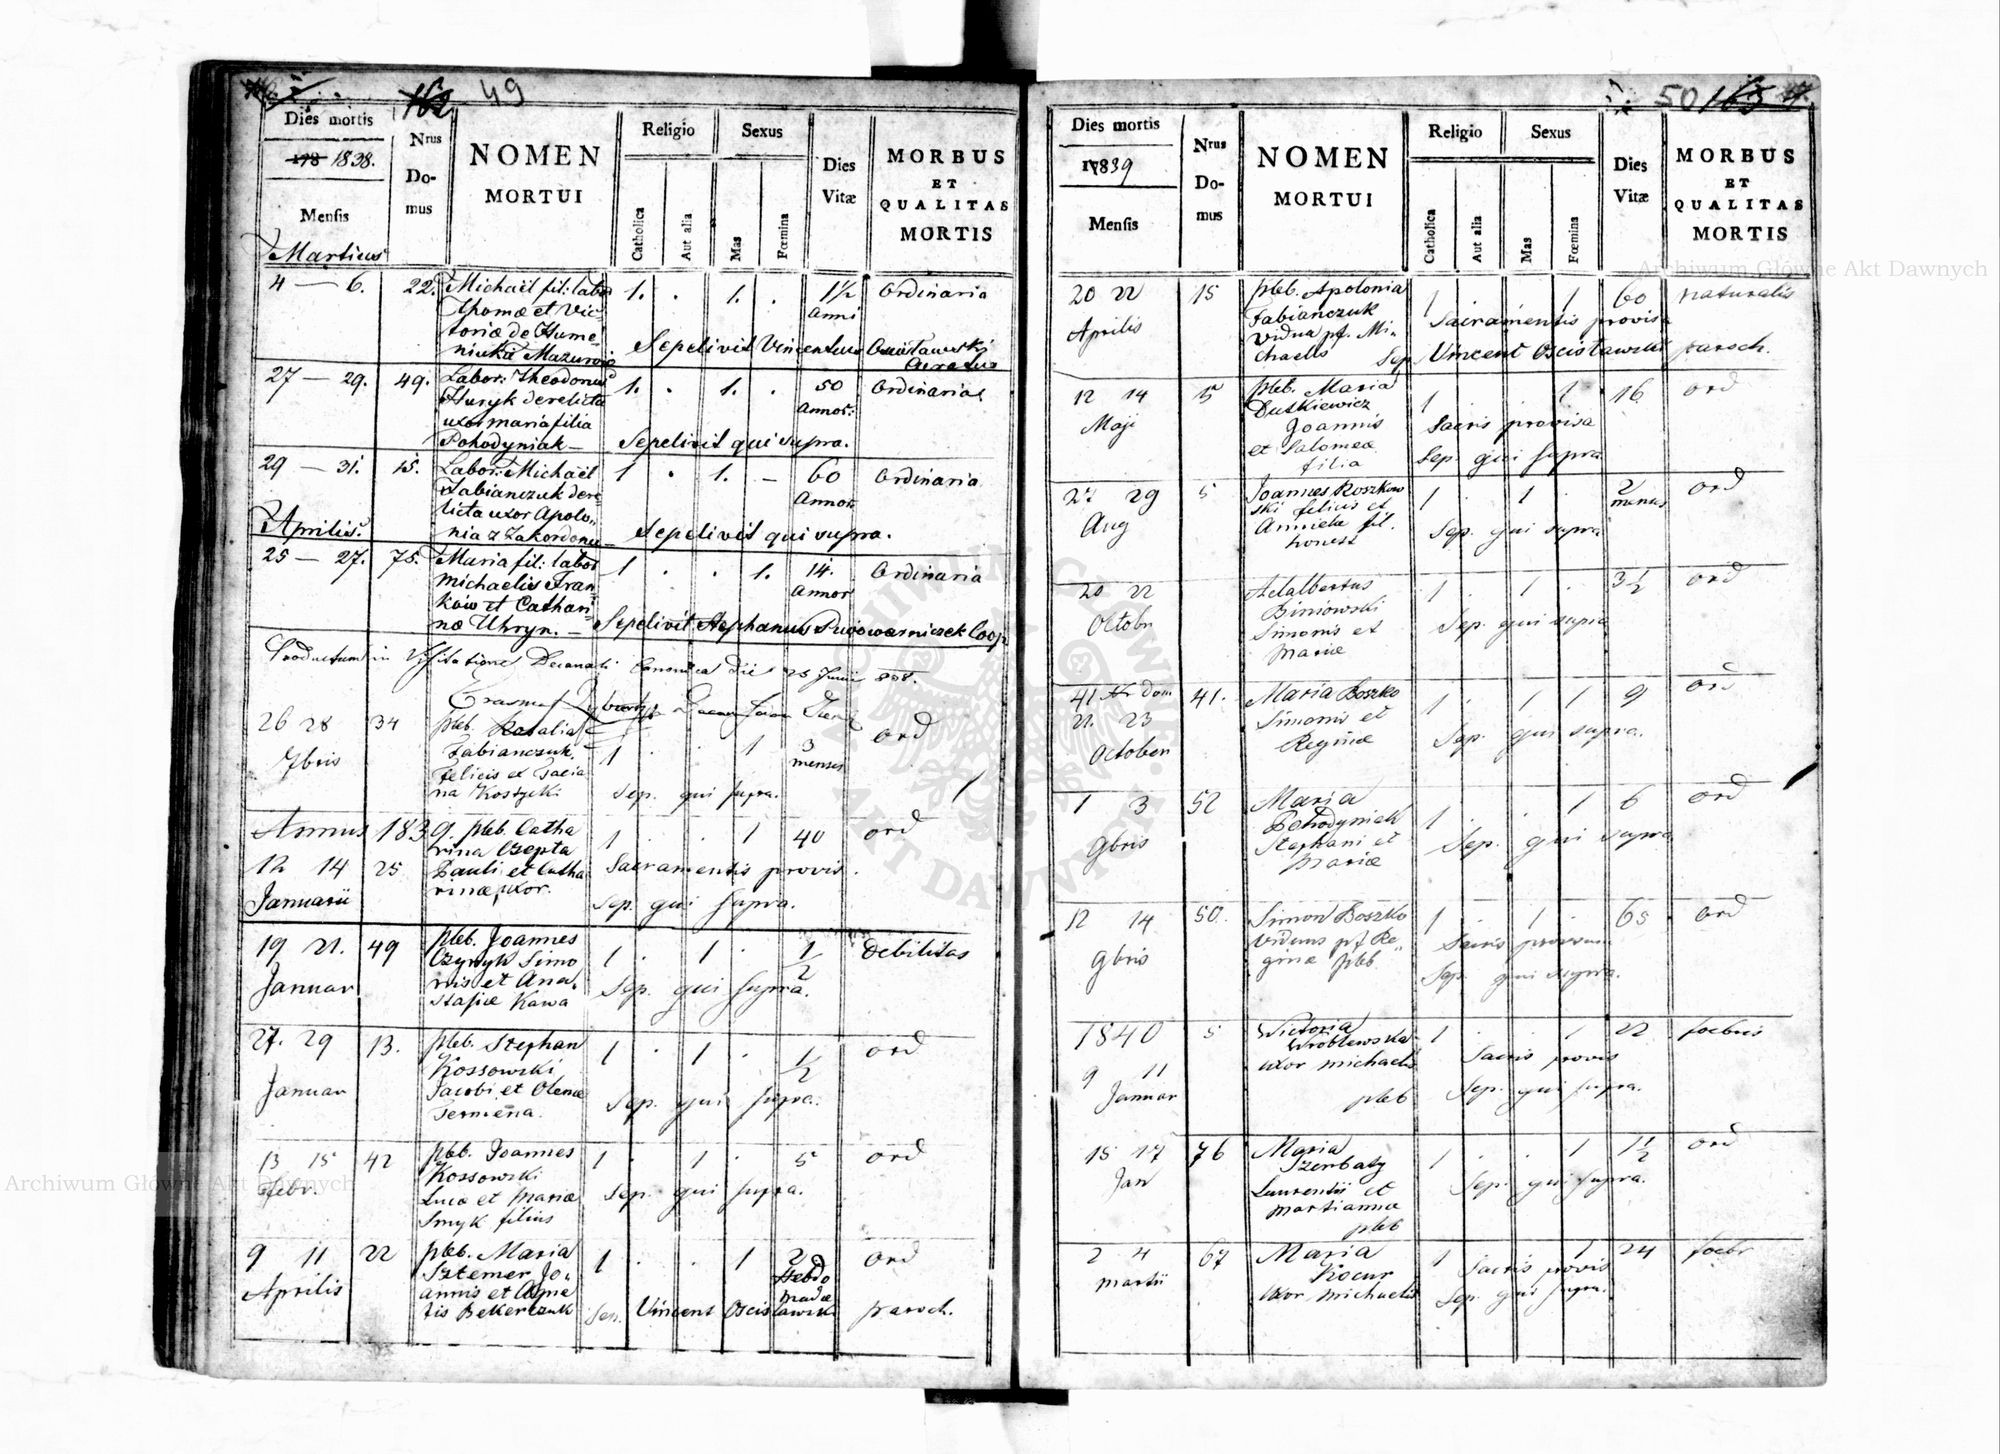 49
Dies mortis
1838.
Mensis
Martius
Nrus
Do-
mus
NOMEN
MORTUI
Religio
Catholica
Aut alia
Sexus
Mas
Fœmina
Dies
Vitæ
MORBUS
ET
QUALITAS
MORTIS
4 — 6. 22. Michaël fil: labor 1. . 1. . 1½ Ordinaria
Thomæ et Vic- Anni
toriæ de Hume-
niuki Mazurów Sepelivit Vincentius Ościsławski
Curatus
27 — 29. 49. Labor: Theodorus 1. . 1. . 50 Ordinaria
Huryk derelicta Annor:
uxor maria filia
Pohodyniak — Sepelivit qui supra.
29 — 31. 15. Labor: Michaël 1 . 1. — 60 Ordinaria
Fabianczuk dere Annor
licta uxor Apolo-
Aprilis. nia z Zakordonu — Sepelivit qui supra.
25 — 27. 75. Maria fil: labor 1 . . 1. 14. Ordinaria
michaelis Fran- Annor
ków et Cathari
næ Uhryn. — Sepelivit Stephanus Coop.
Productum in Visitatione Decanali Canonica die 25 Junii 838.
26 28 34 pleb. Rosalia ord
7bris Fabianczuk 1 . . 1 3
Felicis et menses
na Kossycki Sep. qui supra.
Annus 1839. pleb. Catha 1 . . 1 40 ord
rina Czepta
12 14 25 Pauli et Catha Sacramentis provis.
Januarii rinæ, uxor. Sep. qui supra.
19 21. 49 pleb. Joannes 1 . 1 . 1/2 Debilitas
Simo
Januar nis et Ana- Sep. qui supra.
stasiæ Kawa
27. 29 13. pleb. Stephan 1 . 1 . 1/2 ord
Kossowski
Januar Jacobi et Olenæ Sep. qui supra.
13 15 42 pleb. Joannes 1 . 1 . 5 ord
Febr. Kossowski
Lucæ et Mariæ Sep. qui supra.
Smyk filius
9 11 22 pleb. Maria 1 . . 1 2 ord
Aprilis Sztemer Jo- Hebdo
annis et Agne madæ
tis Bekerczuk Sep. Vincent Oscisławski paroch.
50
Dies mortis
1839
Mensis
Nrus
Do-
mus
NOMEN
MORTUI
Religio
Catholica
Aut alia
Sexus
Mas
Fœmina
Dies
Vitæ
MORBUS
ET
QUALITAS
MORTIS
20 22 15 pleb. Apolonia 1 1 60 naturalis
Aprilis Fabianczuk Sacramentis provisa
vidua pt. Mi-
chaelis Sep. Vincent Oscisławski paroch.
12 14 5 pleb. Maria 1 . . 1 16 ord
Maji Dutkiewicz
Joannis Sacris provisa
et Salomeæ Sep. qui supra
filia
27 29 5 Joannes Roszkow 1 . 1 . 2 ord
Aug ski filius et menses
Anniela fil. Sep. qui supra
honest
20 22 Adalbertus 1 . 1 . 3½ ord
Octobr Biniowski
Simonis et Sep. qui supra
Mariæ
41 Nr dom 41. Maria Boszko 1 . 1 1 9 ord
21. 23 Simonis et
October Reginæ Sep. qui supra.
1 3 52 Maria 1 . . 1 6 ord
9bris Pohodyniak
Stephani et Sep. qui supra
Mariæ
12 14 50. Simon Boszko 1 . 1 . 65 ord
9bris viduus pt Re- Sacris provisus
ginæ pleb Sep. qui supra.
1840 5 Victoria 1 . . 1 22 foebris
Wróblewska
9 11 uxor michaelis Sacris provis
Januar pleb Sep. qui supra.
15 17 76 Maria 1 . . 1 1½ ord
Jan Szerbaty
Laurentii et Sep. qui supra.
Martiannæ
pleb
2 4 67 Maria 1 . 1 24 foebr
martii Kocur Sacris provis
uxor michaelis Sep. qui supra.
Archiwum Główne Akt Dawnych
Archiwum Główne Akt Dawnych
ARCHIWUM GŁÓWNE AKT DAWNYCH